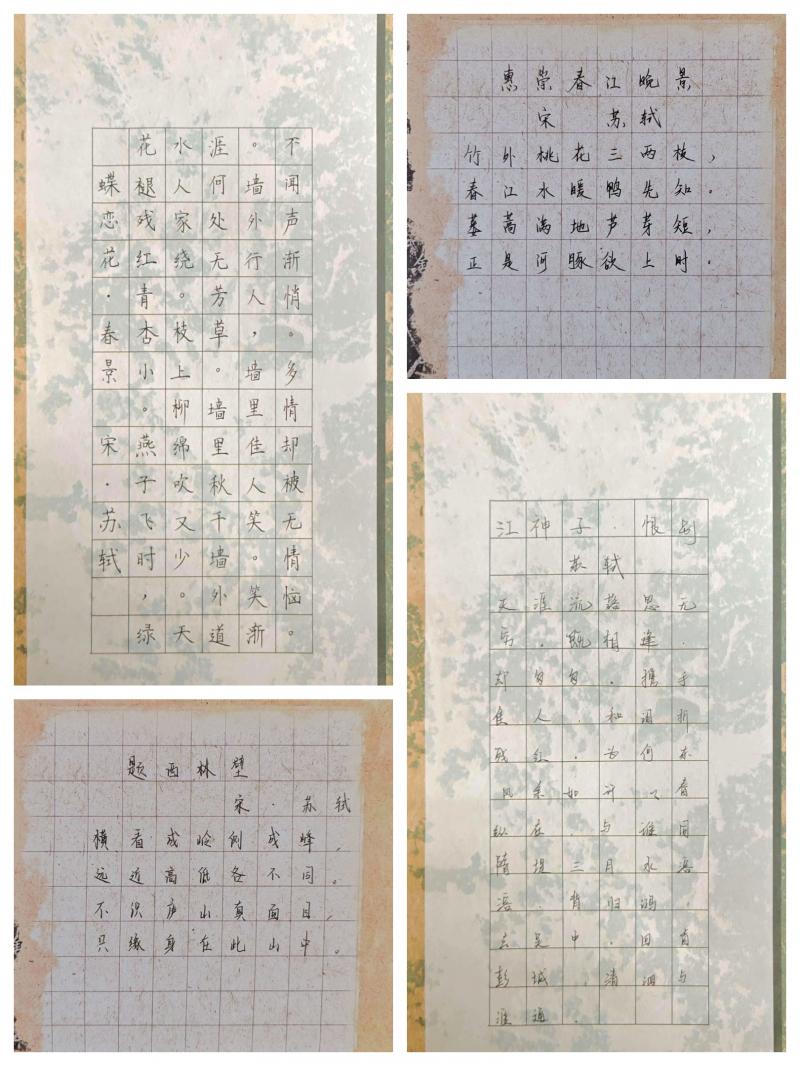 蝶恋花·春景 宋·苏轼
花褪残红青杏小。燕子飞时，绿
水人家绕。枝上柳绵吹又少。天
涯何处无芳草。墙里秋千墙外道
。墙外行人，墙里佳人笑。笑渐
不闻声渐悄。多情却被无情恼。
惠崇春江晚景
宋 苏轼
竹外桃花三两枝，
春江水暖鸭先知。
蒌蒿满地芦芽短，
正是河豚欲上时。
题西林壁
宋·苏轼
横看成岭侧成峰，
远近高低各不同。
不识庐山真面目，
只缘身在此山中。
江神子·恨别
苏轼
天涯流落思无
穷。既相逢.
却匆匆。携手
佳人.和泪折
残红.为何东
风余如许 春
纵在.与谁同
隋堤三月水溶
溶.背归鸿.
去吴中.回首
彭城.清泗与
淮通.